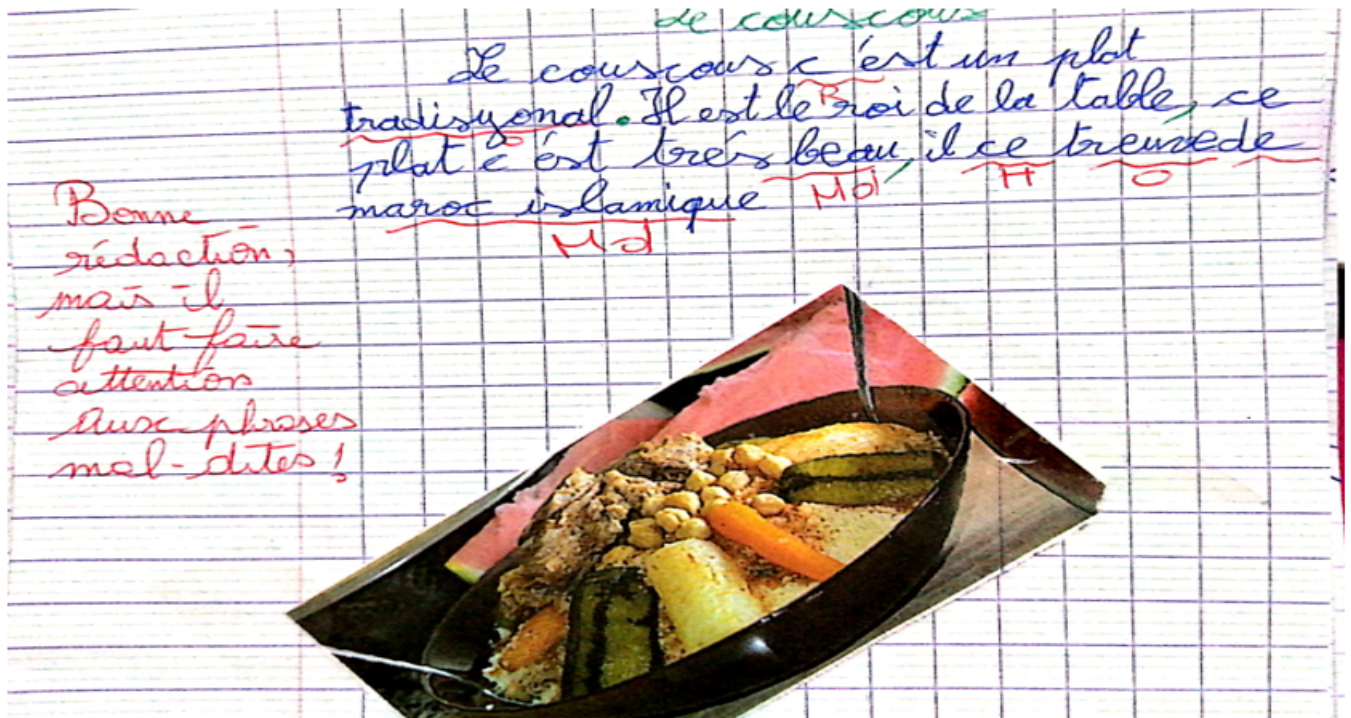 Le couscous
Le couscous c'est un plat
tradisyonal. Il est le roi de la table, ce
R
plat c'ést trés beau, il ce treuve de
O
maroc islamique
Md
H
O
Md
Bonne
rédaction,
mais il
faut faire
attention
aux phrases
mal-dites!